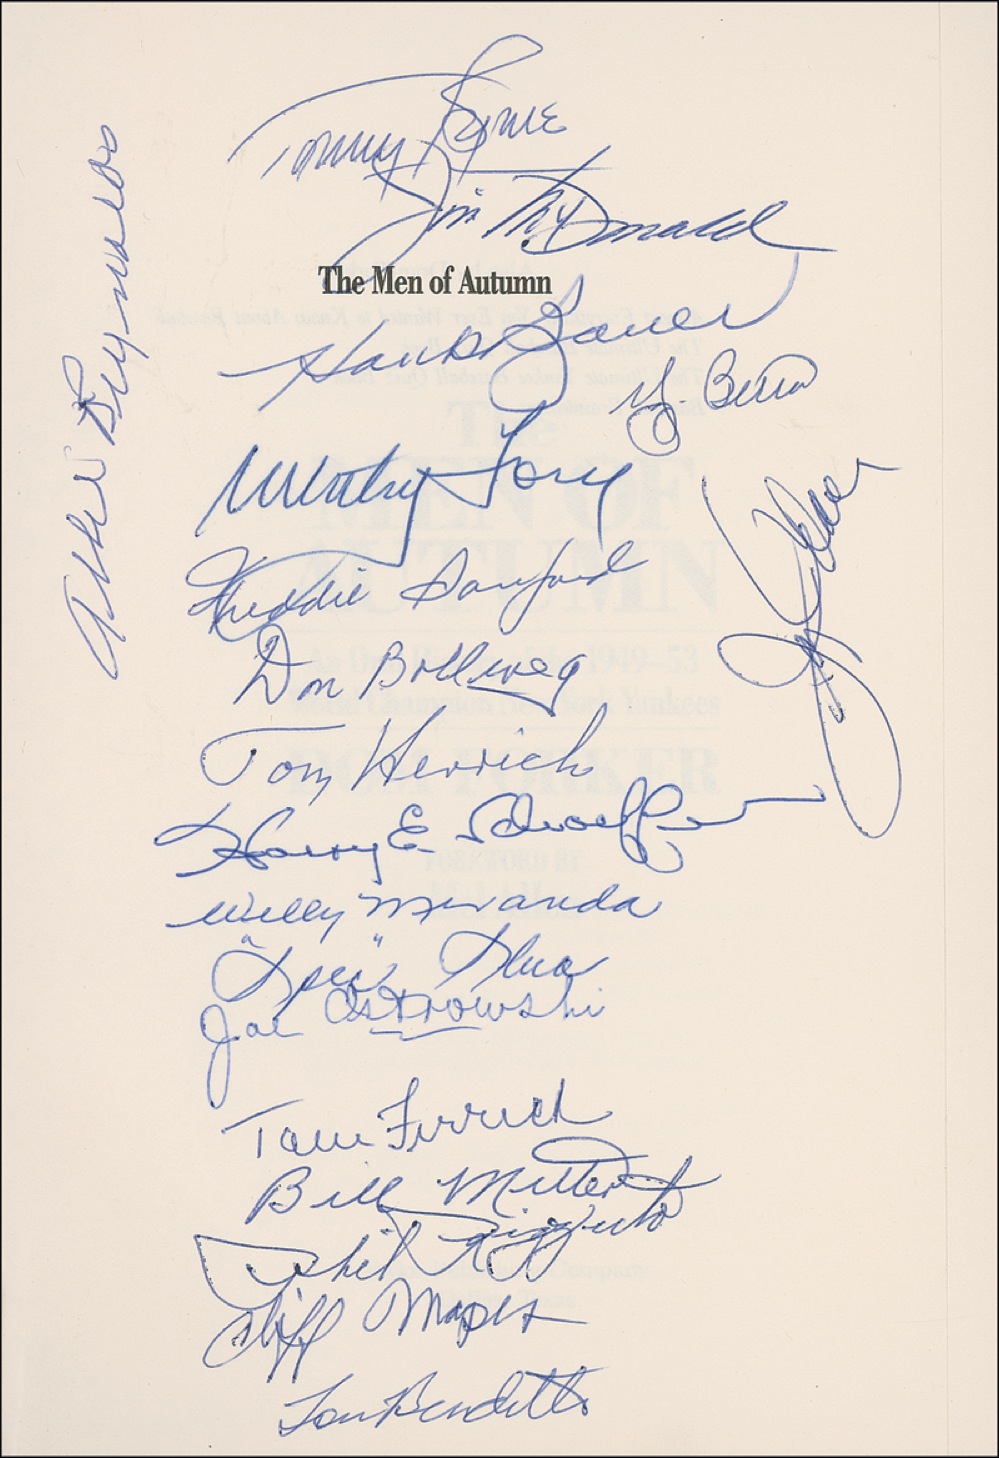 Tommy Byrne
Jim McDonald
The Men of Autumn
Hank Bauer
Y. Berra
Whitey Ford
Allie Reynolds
Freddie Sanford
Don Bollweg
Tom Henrich
Harry E. Schaeffer
Willy Miranda
"Spec" Shea
Joe Ostrowski
Tom Ferrick
Bill Miller
Phil Rizzuto
Cliff Mapes